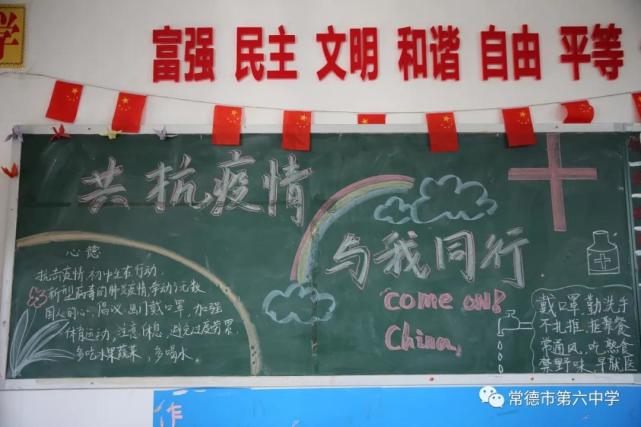 学
富强 民主 文明 和谐 自由 平等
共抗疫情
与我同行
come on!
China,
心德
抗击疫情,初中生在行动.
新型病毒的肺炎疫情,牵动了无数
国人的心,倡议出门戴口罩,加强
体育运动,注意休息,避免过度劳累.
多吃水果蔬菜,多喝水.
戴口罩,勤洗手
不扎堆,拒聚餐
常通风,吃熟食
禁野味,早就医
作
常德市第六中学